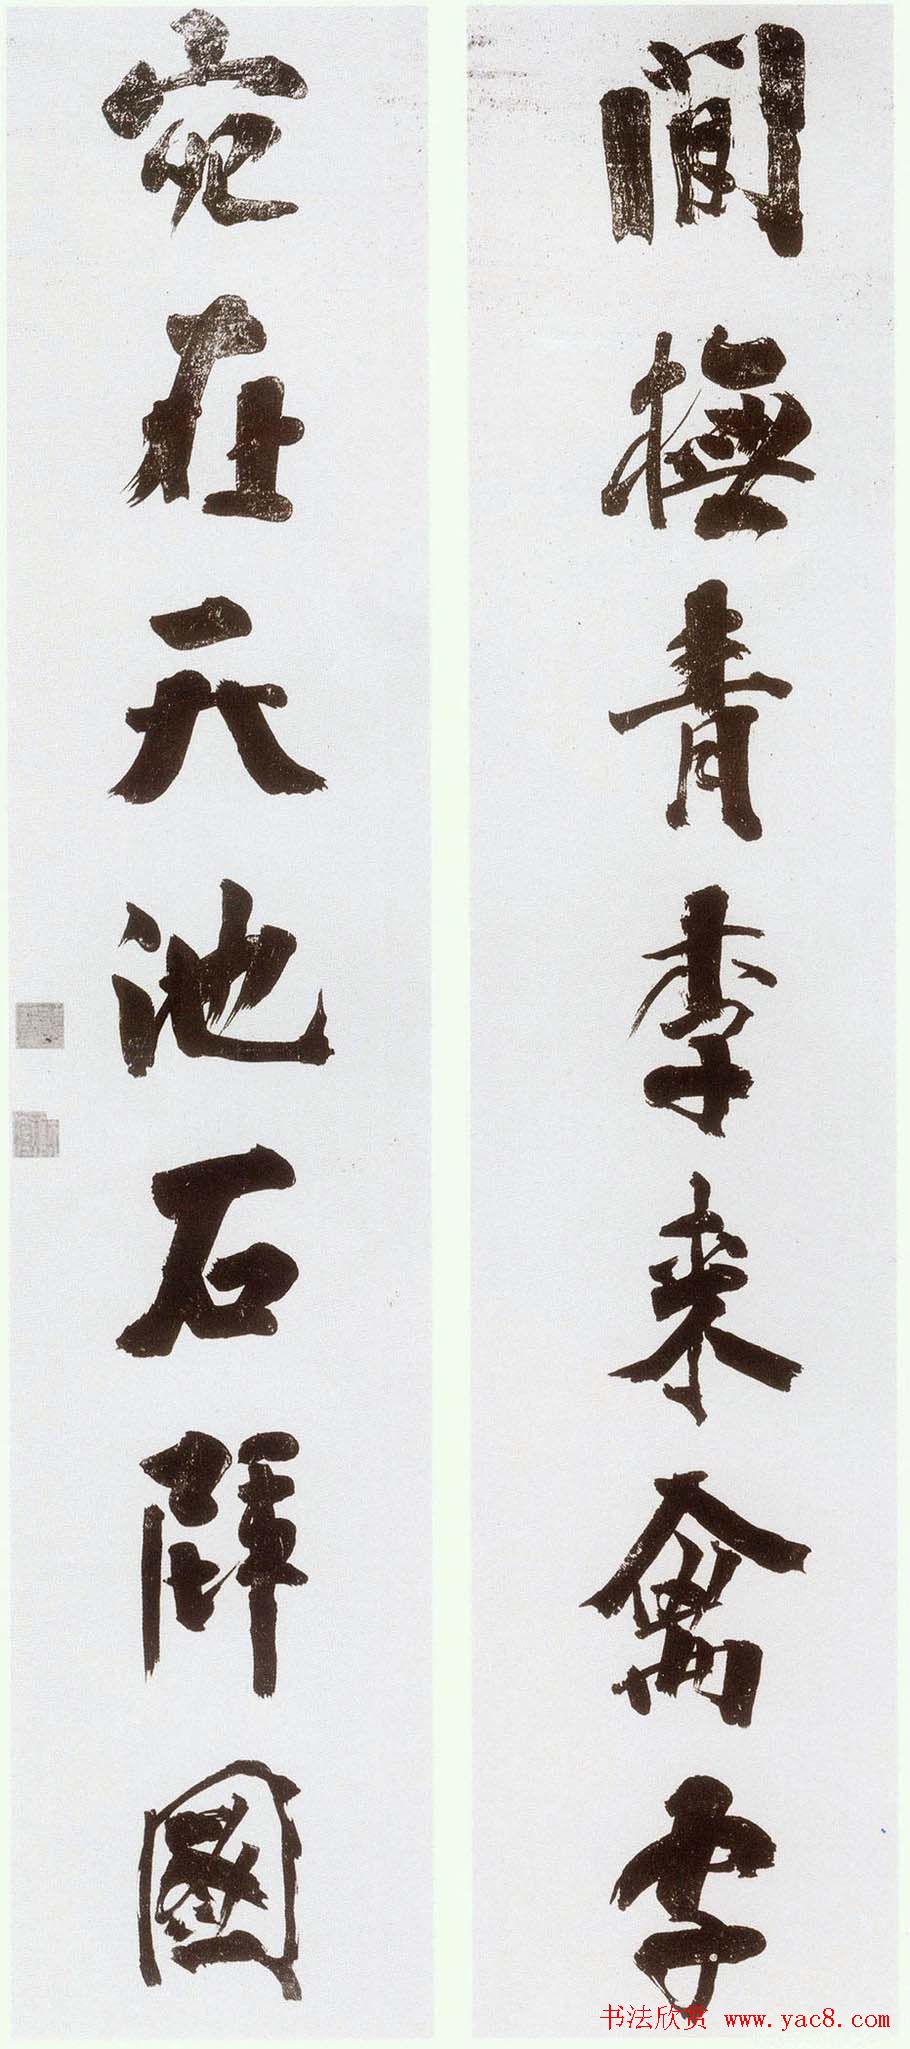 閒撫青李来禽字
宛在天池石壁國
书法欣赏 www.yac8.com